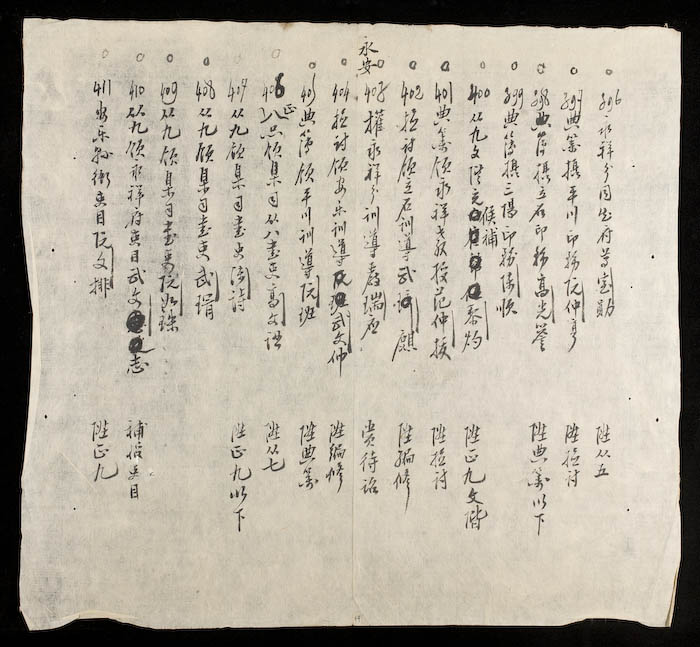 396 永祥分同 府
陞从五
397 典籍撰平川印務阮仲亨
陞檢討
398 典簿撰立石印務高光
399 典簿撰三陽印務陳順
陞典籍以下
400 从九文階充 候補 灼
陞正九文階
401 典籍領永祥教授范仲援
陞檢討
402 檢討領立石訓導武 麒
陞編修
永安
403 權永祥分訓導 瑞应
賞待詔
404 檢討領安乐訓導武文仲
陞編修
405 典簿領平川訓導阮班
陞典籍
406 正八品領集司从八書吏高文
陞从七
407 从九領集司書吏 詩
陞正九以下
408 从九領集司書吏武琄
409 从九領集司書吏阮如
410 从九領永祥府吏目武文志
補 吏目
411 安乐縣衙吏目阮文排
陞正九